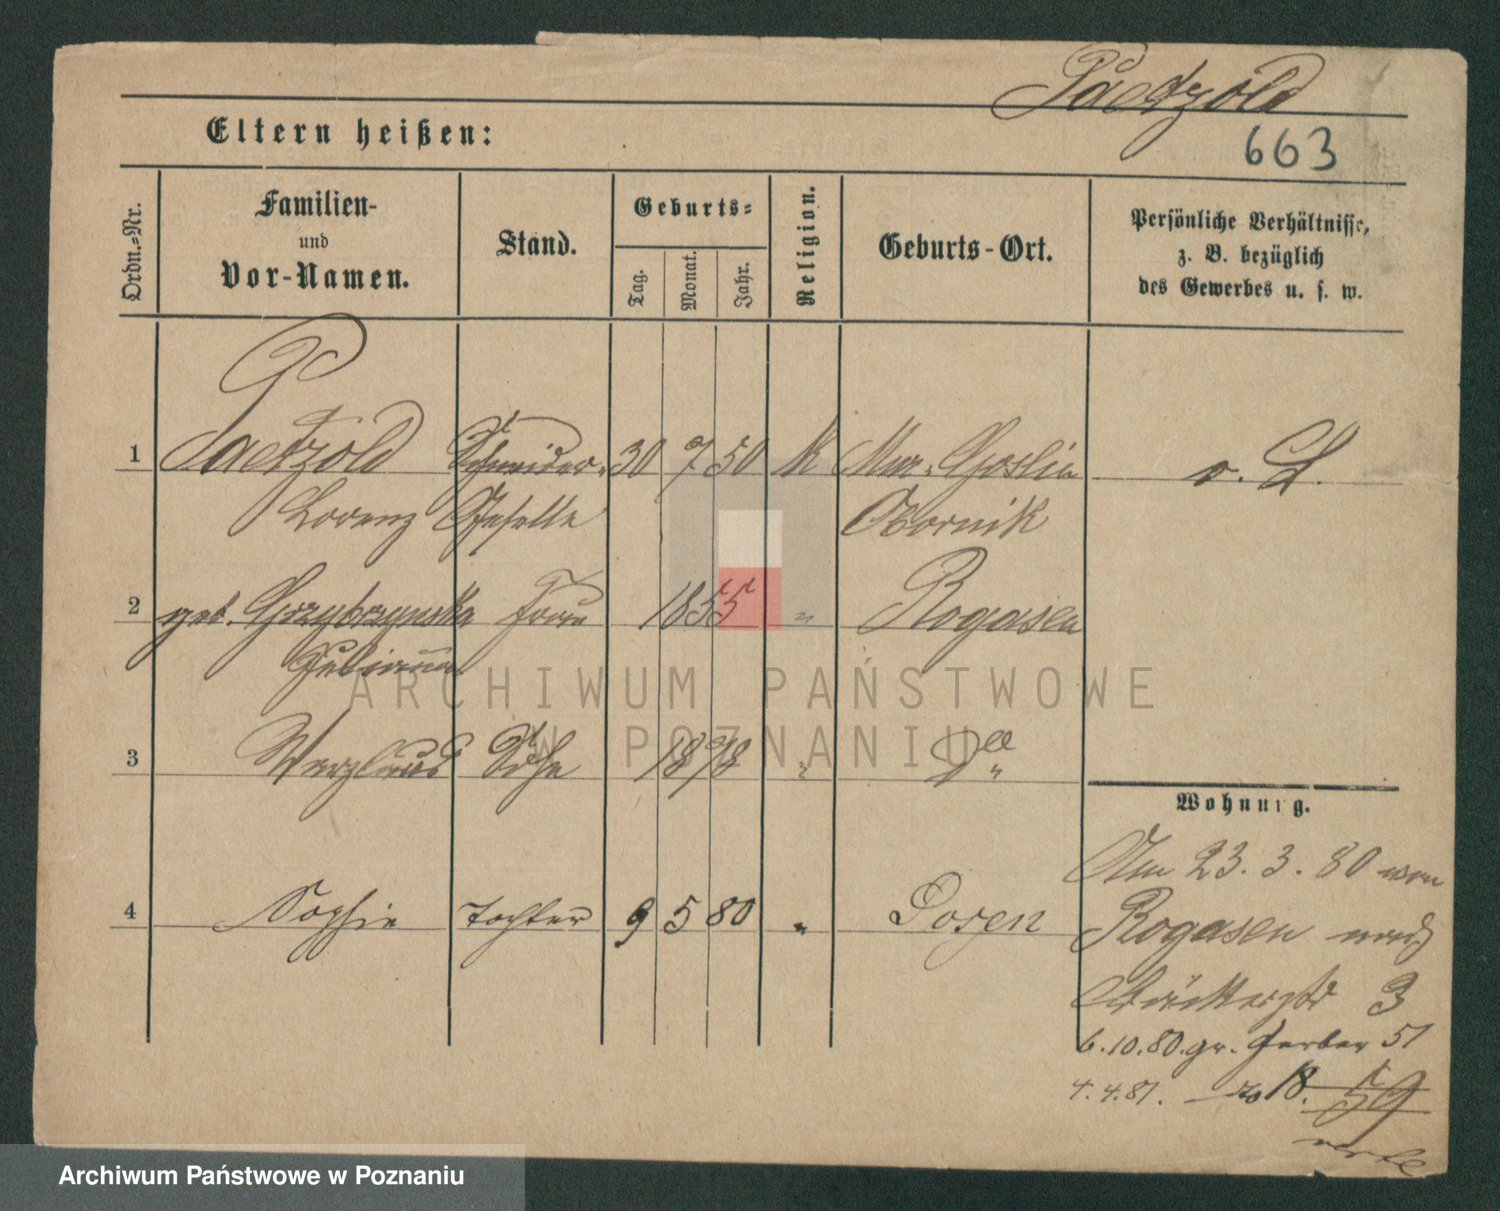 Paetzold
Eltern heißen:
663
Ordn.=Nr.
Familien-
und
Vor-Namen.
Stand.
Geburts=
Tag.
Monat.
Jahr.
Religion.
Geburts-Ort.
Persönliche Verhältnisse,
z. B. bezüglich
des Gewerbes u. s. w.
1 Paetzold Schneider- 30 7 50 K Mur. Goslin v. L.
Lorenz Geselle Obornik
2 geb. Grzybzynska Frau 1855 " Rogasen
Julianna
3 Wenzlaus Sohn 1878 " Do "
4 Sophie Tochter 9 5 80 " Posen
Wohnung.
Am 23. 3. 80 von
Rogasen nach
3
6.10.80. gr. Gerber 51
4. 4. 81. do 18.
verte
ARCHIWUM PAŃSTWOWE
W POZNANIU
Archiwum Państwowe w Poznaniu